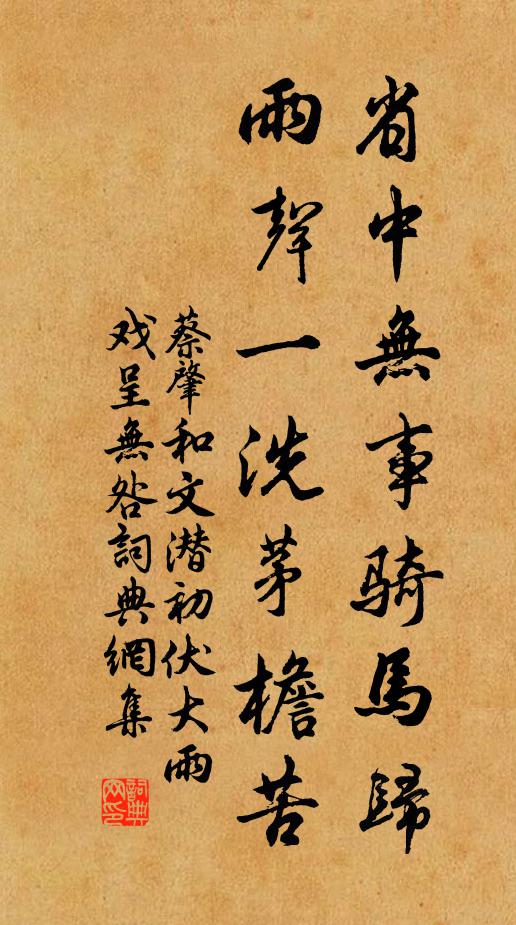 省中無事騎馬歸
雨聲一洗茅檐苦
蔡肇和文潜初伏大雨
戏呈無咎詞典網集
詞典
网印